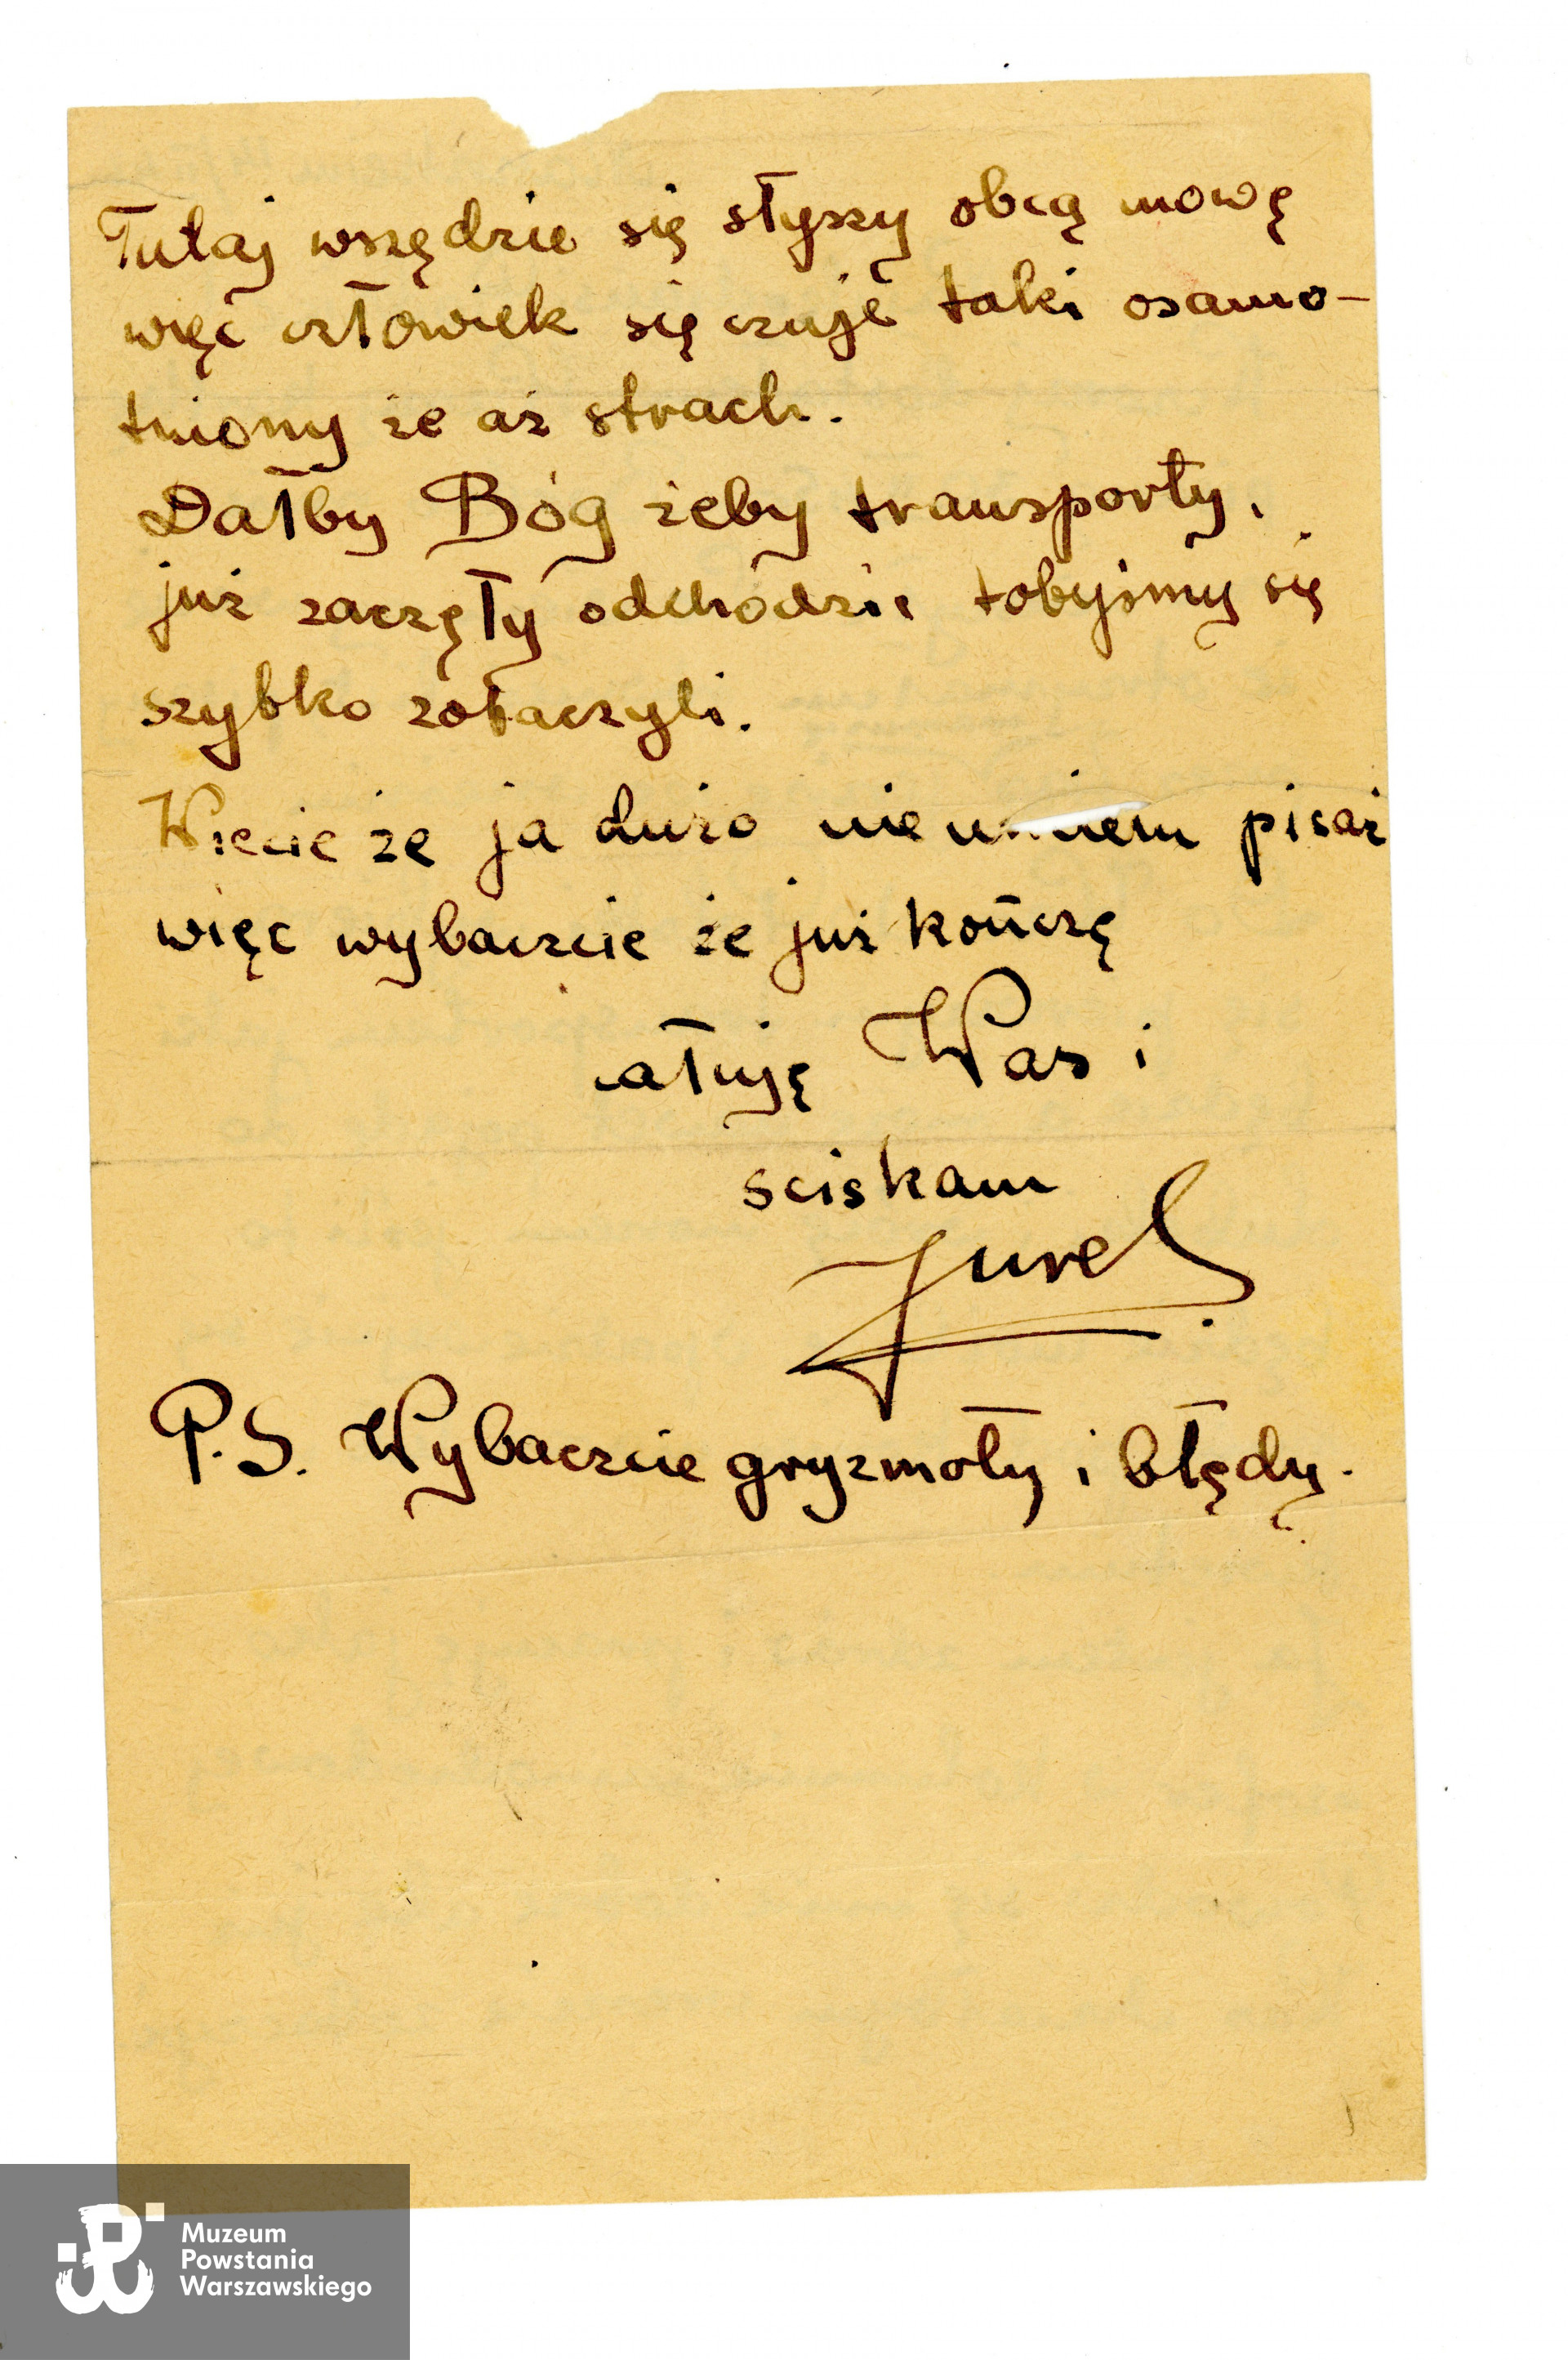 Tutaj wszędzie się słyszy obcą mowę
więc człowiek się czuje taki osamo-
tniony że aż strach.
Dałby Bóg żeby transporty,
już zaczęły odchodzić tobyśmy się
szybko zobaczyli.
Wiecie że ja dużo nie umiem pisać
więc wybaczcie że już kończę
całuję Was i
sciskam
Jurek
P.S. Wybaczcie gryzmoły i błędy.
Muzeum
Powstania
Warszawskiego